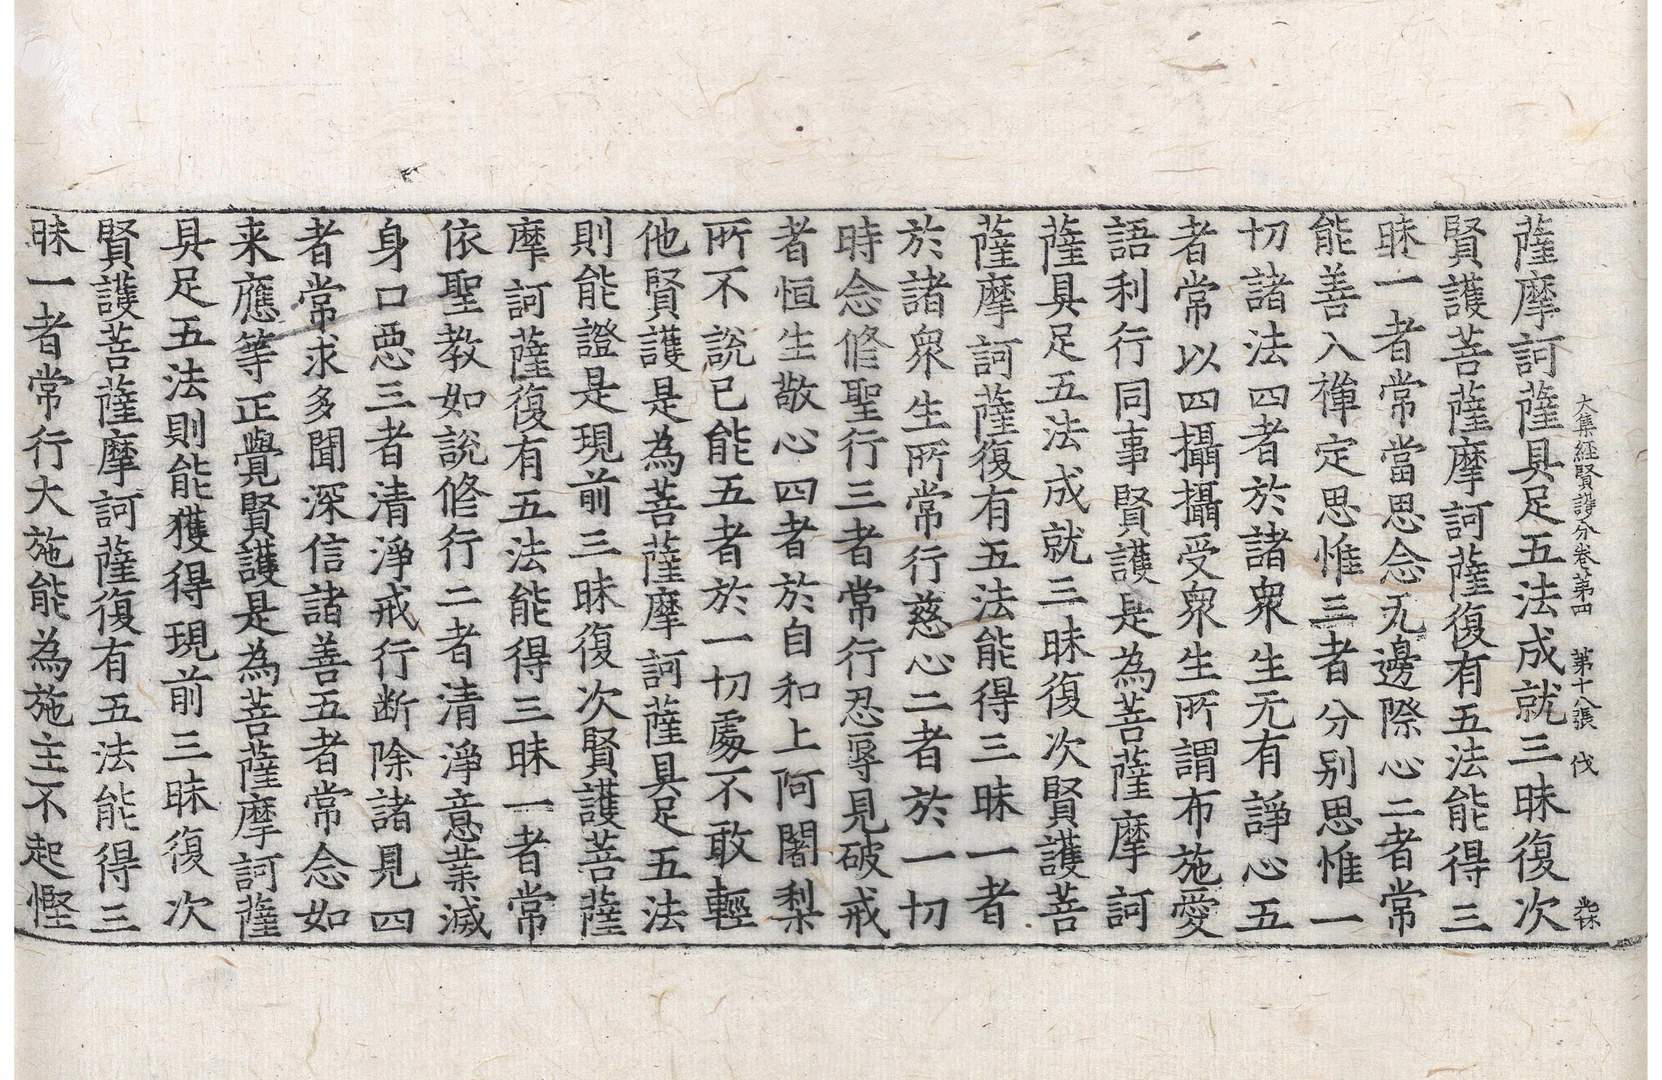 大集經賢護分卷第四　第十八張　伐
薩摩訶薩具足五法成就三昧復次
賢護菩薩摩訶薩復有五法能得三
昧一者常當思念无邊際心二者常
能善入禪定思惟三者分别思惟一
切諸法四者於諸衆生无有諍心五
者常以四攝攝受衆生所謂布施愛
語利行同事賢護是為菩薩摩訶
薩具足五法成就三昧復次賢護菩
薩摩訶薩復有五法能得三昧一者
於諸衆生所常行慈心二者於一切
時念修聖行三者常行忍辱見破戒
者恒生敬心四者於自和上阿闍梨
所不說已能五者於一切處不敢輕
他賢護是為菩薩摩訶薩具足五法
則能證是現前三昧復次賢護菩薩
摩訶薩復有五法能得三昧一者常
依聖教如說修行二者清淨意業滅
身口惡三者清淨戒行断除諸見四
者常求多聞深信諸善五者常念如
来應等正覺賢護是為菩薩摩訶薩
具足五法則能獲得現前三昧復次
賢護菩薩摩訶薩復有五法能得三
昧一者常行大施能為施主不起慳